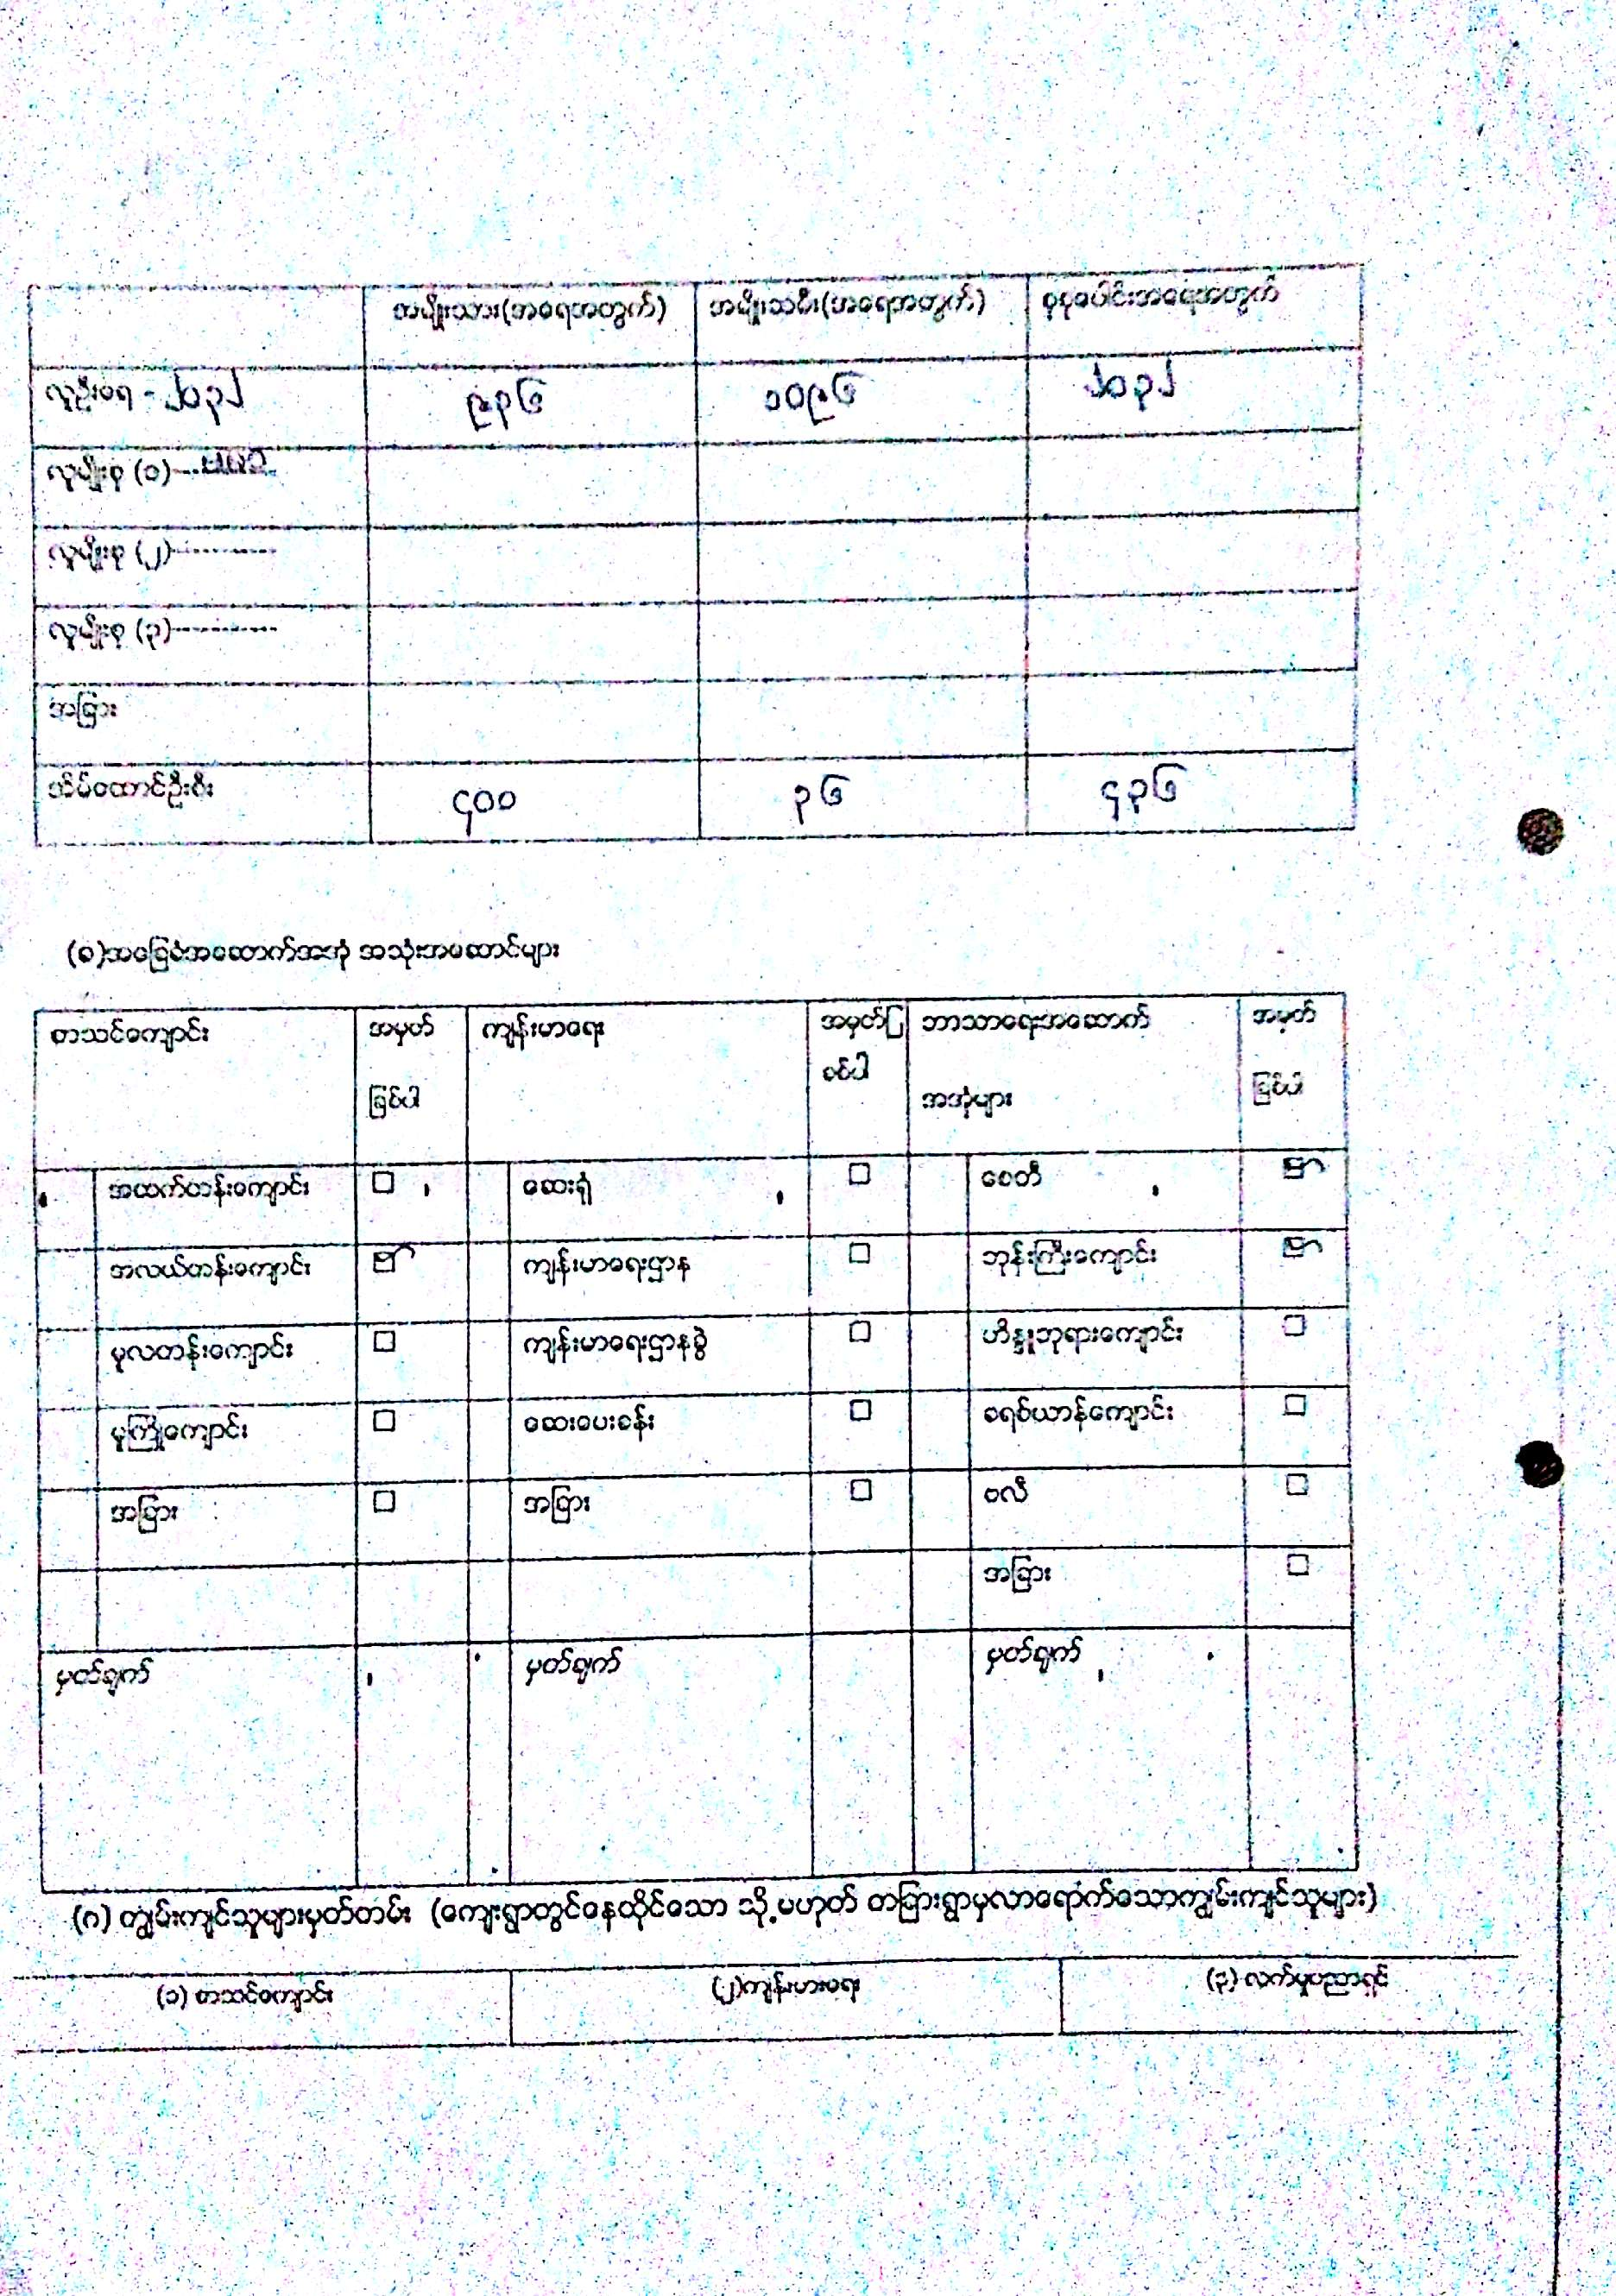 အမျိုးသား(အရေအတွက်) အမျိုးသမီး(အရေအတွက်) စုစုပေါင်းအရေအတွက်
လူဦးရေ - ၂၀၃၂ ၉၃၆ ၁၀၉၆ ၂၀၃၂
လူမျိုးစု (၁)
လူမျိုးစု (၂)------------
လူမျိုးစု (၃)------------
အခြား
အိမ်ထောင်ဦးစီး ၄၀၀ ၃၆ ၄၃၆
(ခ)အခြေခံအဆောက်အအုံ အသုံးအဆောင်များ
စာသင်ကျောင်း အမှတ် ကျန်းမာရေး အမှတ်ြ ဘာသာရေးအဆောက် အမှတ်
ခြစ်ပါ ခစ်ပါ အအုံများ ခြစ်ပါ
အထက်တန်းကျောင်း □ ဆေးရုံ □ စေတီ ☑
အလယ်တန်းကျောင်း ☑ ကျန်းမာရေးဌာန □ ဘုန်းကြီးကျောင်း ☑
မူလတန်းကျောင်း □ ကျန်းမာရေးဌာနခွဲ □ ဟိန္ဒူဘုရားကျောင်း □
မူကြိုကျောင်း □ ဆေးပေးခန်း □ ခရစ်ယာန်ကျောင်း □
အခြား □ အခြား □ ဗလီ □
အခြား □
မှတ်ချက် မှတ်ချက် မှတ်ချက်
(ဂ) ကျွမ်းကျင်သူများမှတ်တမ်း (ကျေးရွာတွင်နေထိုင်သော သို့မဟုတ် တခြားရွာမှလာရောက်သောကျွမ်းကျင်သူများ)
(၁) စာသင်ကျောင်း (၂)ကျန်းမာရေး (၃) လက်မှုပညာရှင်